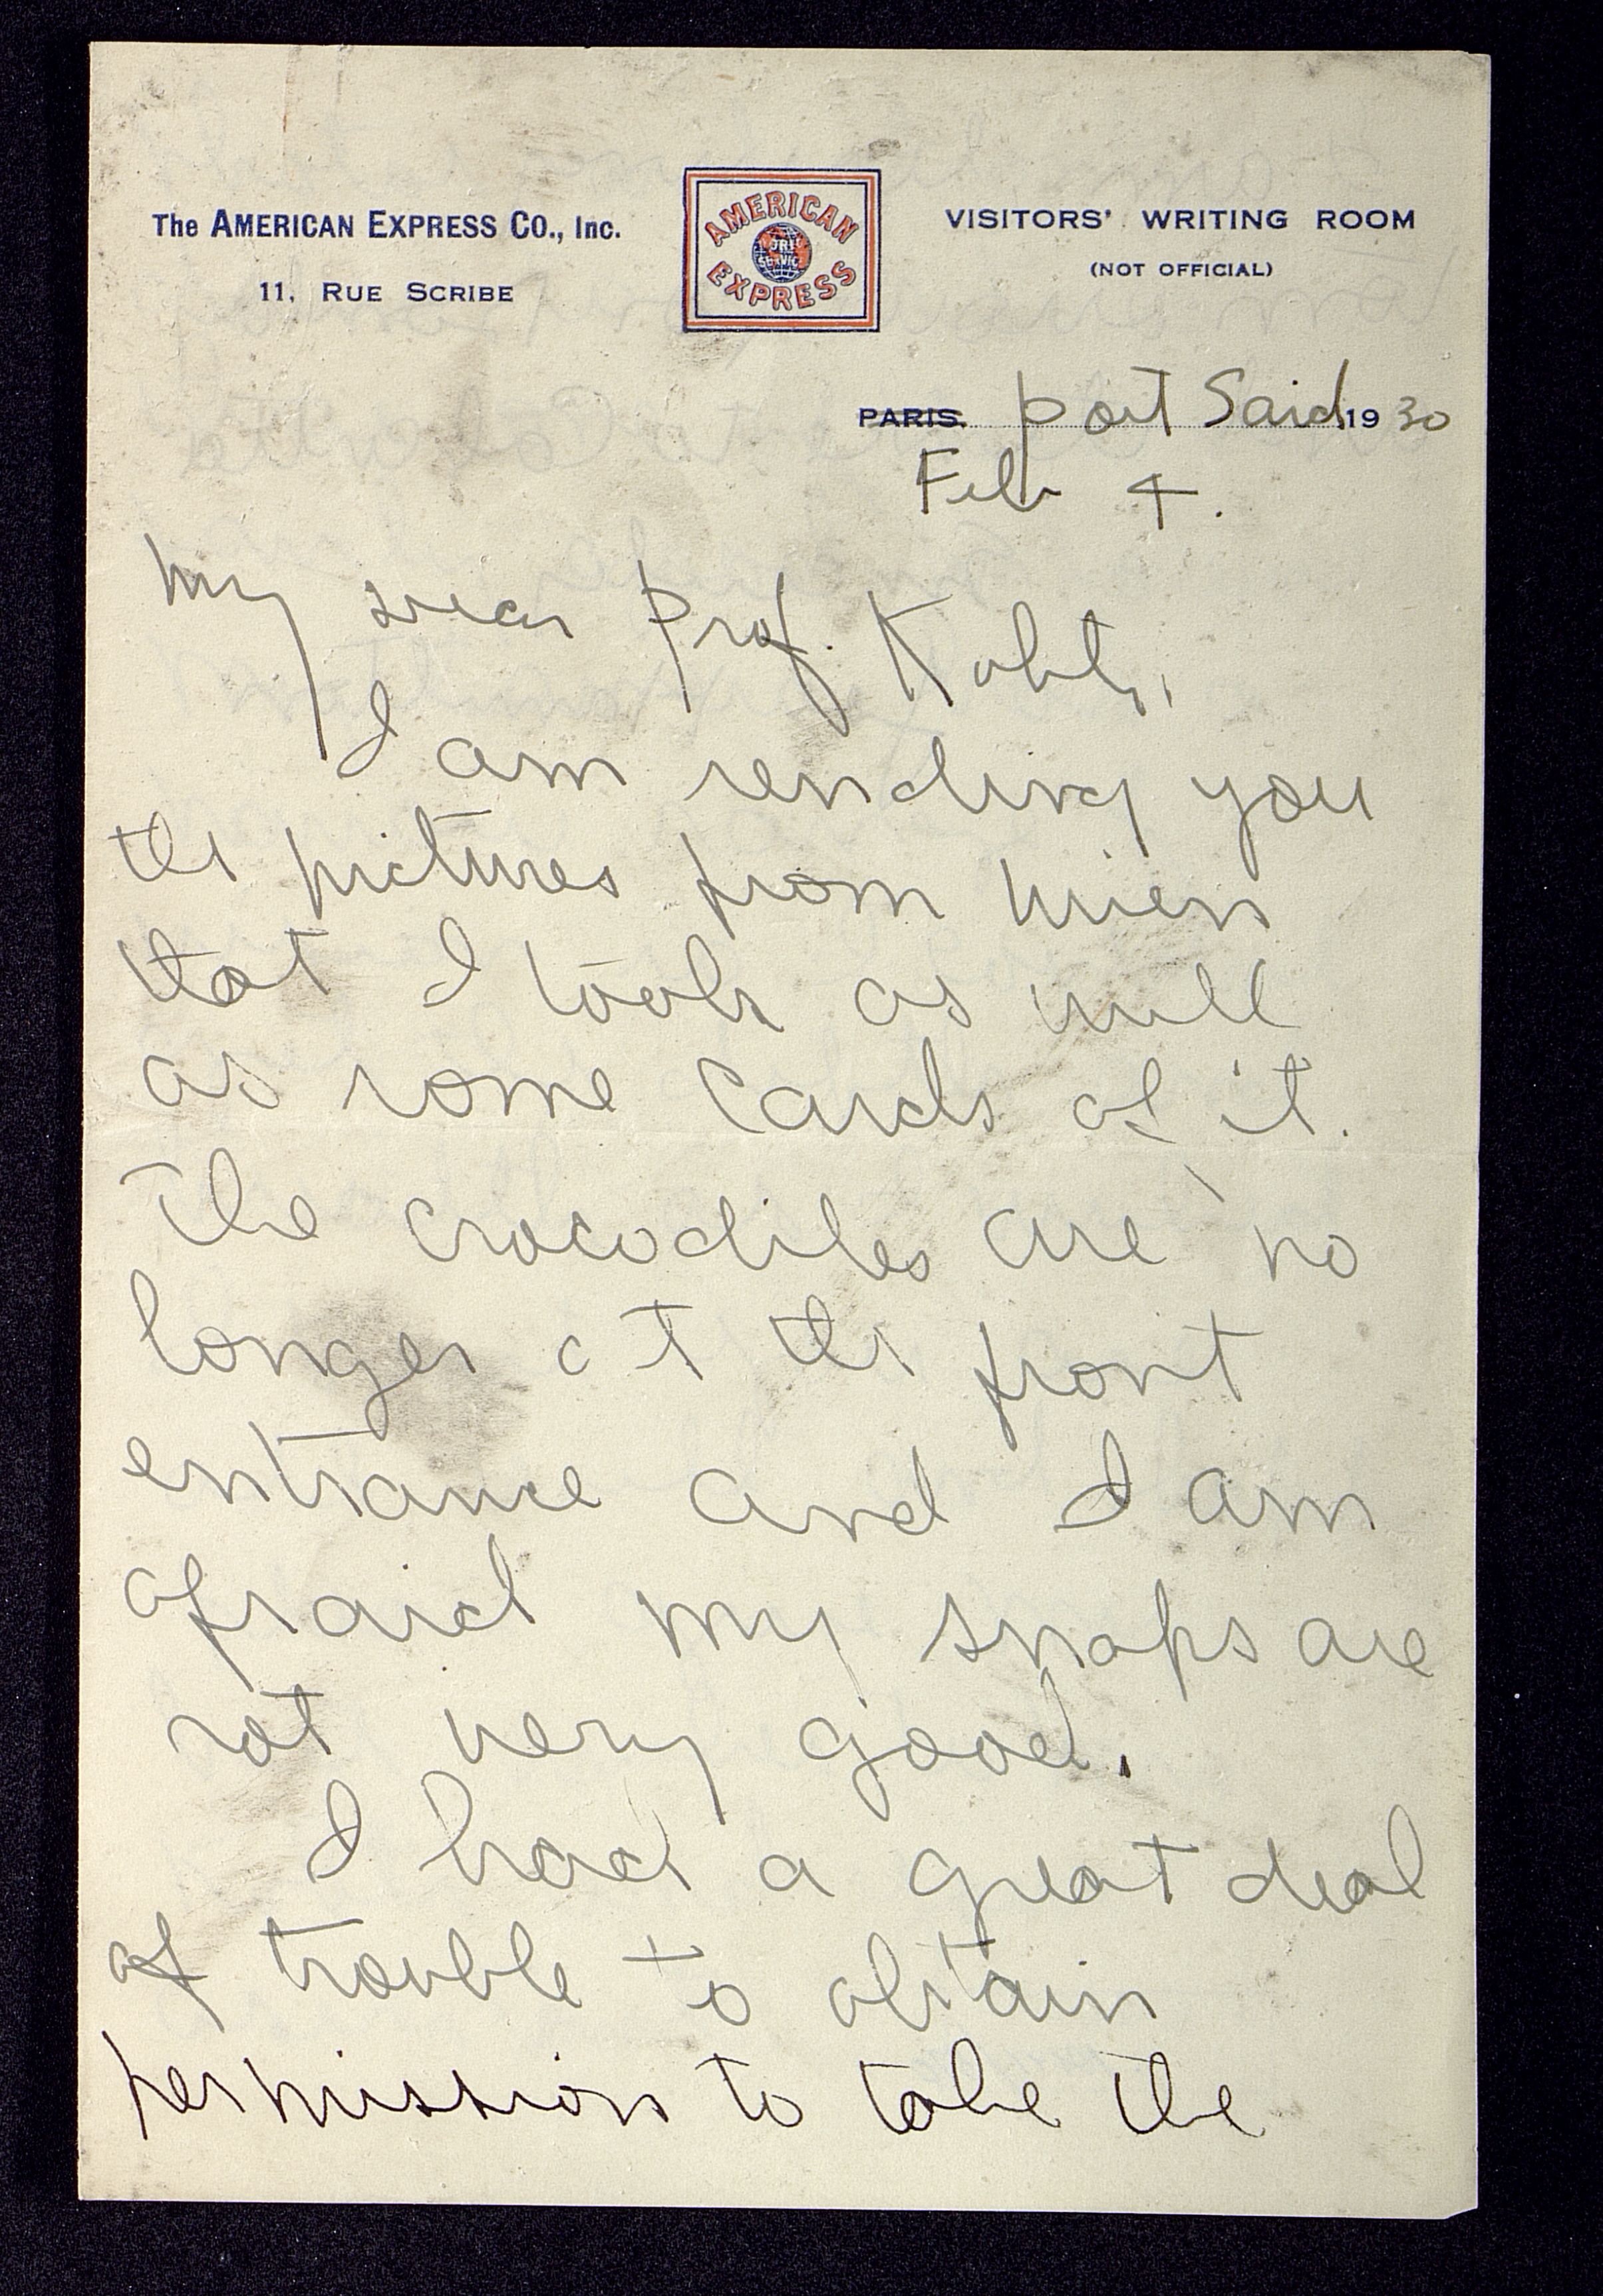 The AMERICAN EXPRESS CO., Inc.
11, RUE SCRIBE
AMERICAN
EXPRESS
VISITORS' WRITING ROOM
(NOT OFFICIAL)
PARIS. Port Said 1930
Feb 4.
My dear Prof. Kohls,
I am sending you
the pictures from Wien
that I took as well
as some cards of it.
The crocodiles are no
longer at the front
entrance and I am
afraid my snaps are
not very good.
I had a great deal
of trouble to obtain
permission to take the